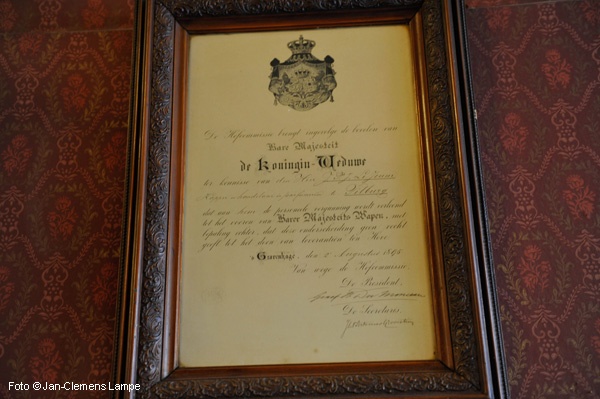 De Hofcommissie brengt ingevolge de bevelen van
Hare Majesteit
de Koningin-Weduwe
ter kennisse van den Heer
te Tilburg
dat aan hem de persoonlijke vergunning wordt verleend
tot het voeren van Harer Majesteits Wapen, met
bepaling echter, dat deze onderscheiding geen recht
geeft tot het doen van leverantiën ten Hove
's Gravenhage, den 2 Augustus 1895
Van wege de Hofcommissie,
De President,
De Secretaris
Foto © Jan-Clemens Lampe